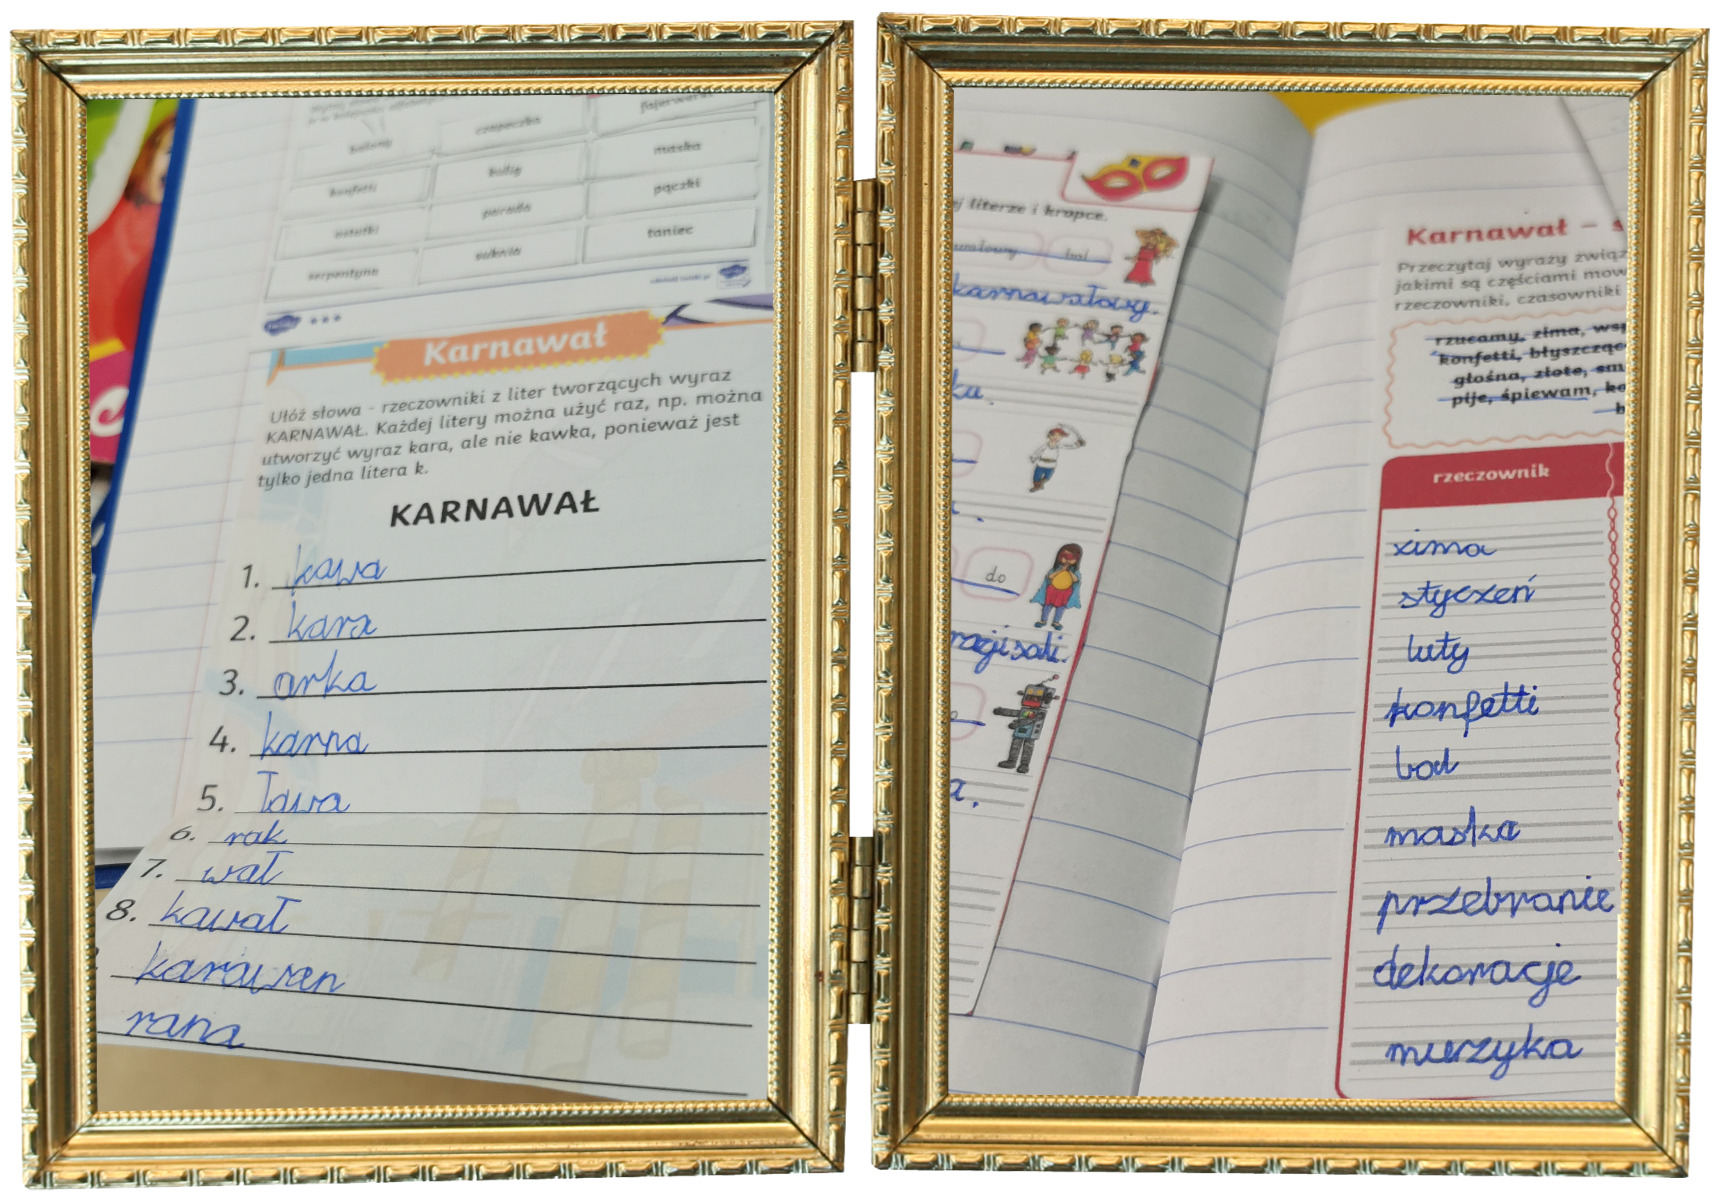 balony
czapeczka
fajerwerki
konfetti
bilety
maska
ostatki
parada
pączki
serpentyna
suknia
taniec
Karnawał
Ułóż słowa - rzeczowniki z liter tworzących wyraz
KARNAWAŁ. Każdej litery można użyć raz, np. można
utworzyć wyraz kara, ale nie kawka, ponieważ jest
tylko jedna litera k.
KARNAWAŁ
1. kawa
2. kara
3. arka
4. karna
5. ława
6. rak
7. wał
8. kawał
karawan
rana
ej literze i kropce.
bal
karnawałowy.
ku.
do
sali.
a.
Karnawał – s
Przeczytaj wyrazy związ
jakimi są częściami mow
rzeczowniki, czasowniki
rzucamy, zima, wsp
konfetti, błyszcząc
głośna, złote, sm
pije, śpiewam, ko
b
rzeczownik
zima
styczeń
luty
konfetti
bal
maska
przebranie
dekoracje
muzyka